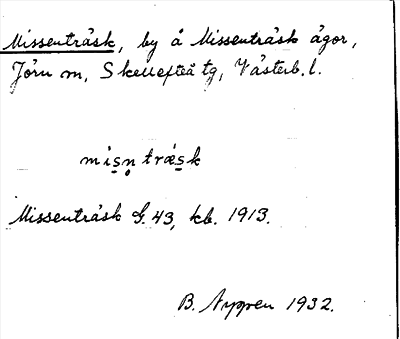 Missenträsk, by å Missenträsk ägor,
Jörn sn, Skellefteå tg, Västerb. l.
misn träsk
Missenträsk G. 43, kb. 1913.
B. 1932.